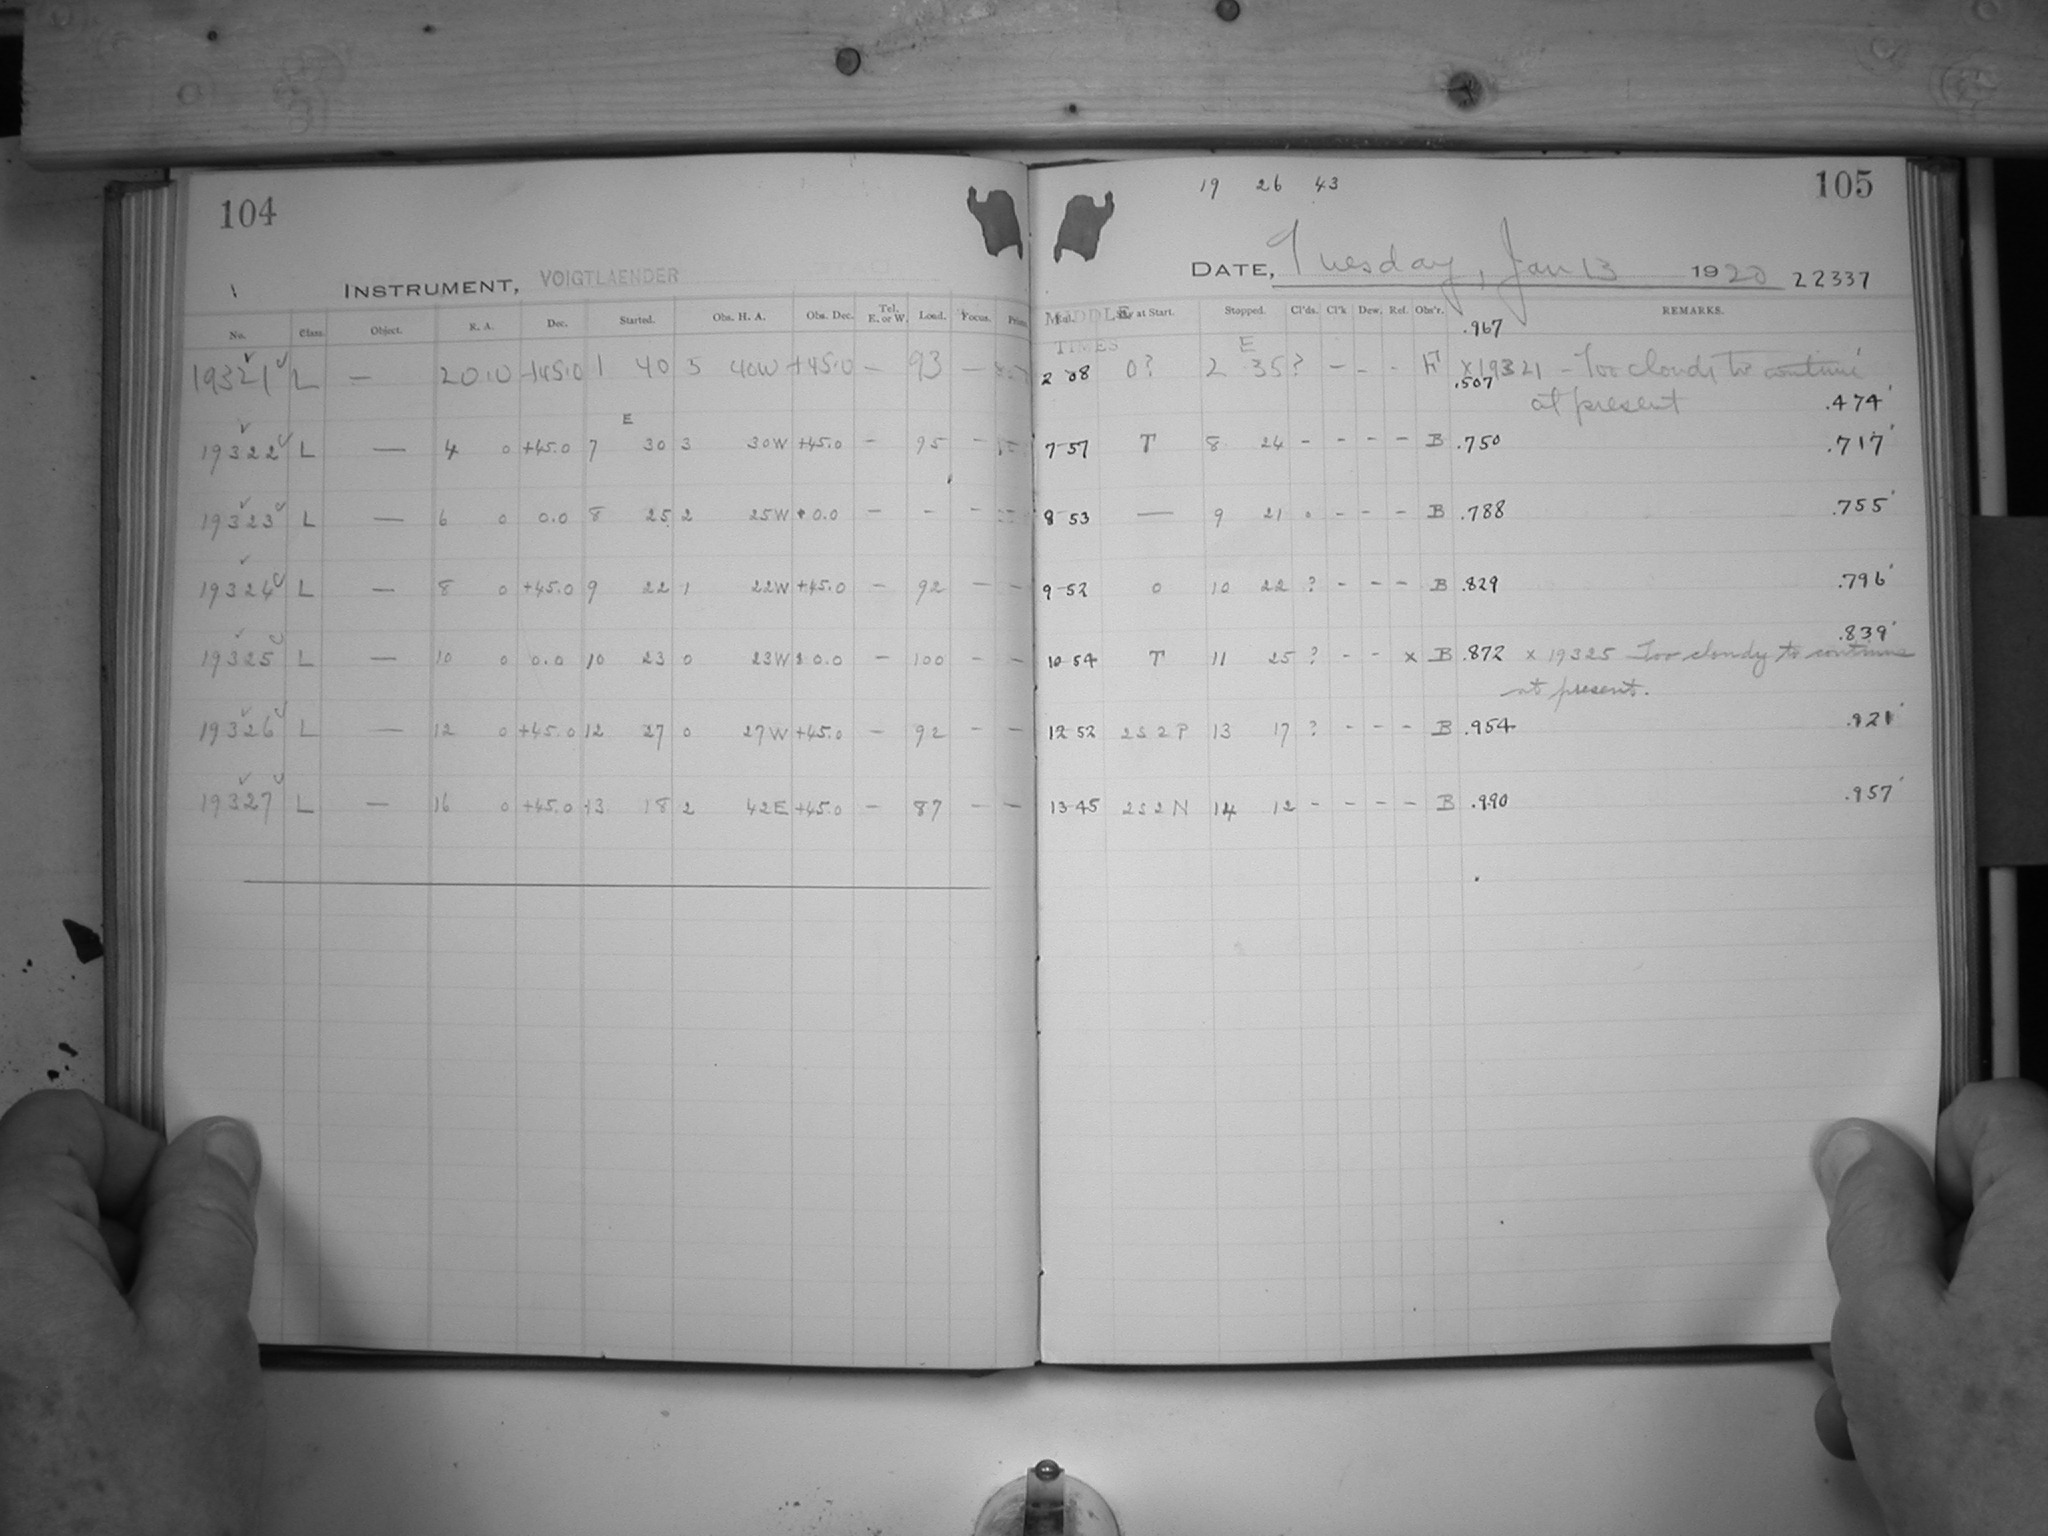 104
INSTRUMENT, VOIGTLAENDER
No. Class. Object. R. A. Dec. Started. Obs. H. A. Obs. Dec. Tel. E. or W. Load. Focus.
19321 L — 20.0 +45.0 1 40 5 40W +45.0 — 93 —
E
19322 L — 4 0 +45.0 7 30 3 30W +45.0 — 95 —
19323 L — 6 0 0.0 8 25 2 25W 0.0 — - -
19324 L — 8 0 +45.0 9 22 1 22W +45.0 - 92 — -
19325 L — 10 0 0.0 10 23 0 23W 0.0 — 100 - -
19326 L — 12 0 +45.0 12 27 0 27W +45.0 — 92 - —
19327 L — 16 0 +45.0 13 18 2 42E +45.0 — 87 - —
19 26 43
105
DATE, Tuesday, Jan 13 1920 22337
MIDDLE TIMES at Start. Stopped. Cl'ds. Cl'k Dew. Ref. Obs'r. REMARKS.
.967
E
2 08 0? 2 35? - - - H x19321 - Too cloudy to continue
.507
at present .474'
7-57 T 8 24 - - - - B .750 .717'
8 53 — 9 21 . - - - B .788 .755'
9-52 0 10 22 ? - - - B .829 .796'
.839'
10-54 T 11 25 ? - - x B .872 x 19325 Too cloudy to continue
at present.
12 52 2S2P 13 17 ? - - - B .954 .921'
13-45 2S2N 14 12 - - - - B .990 .957'